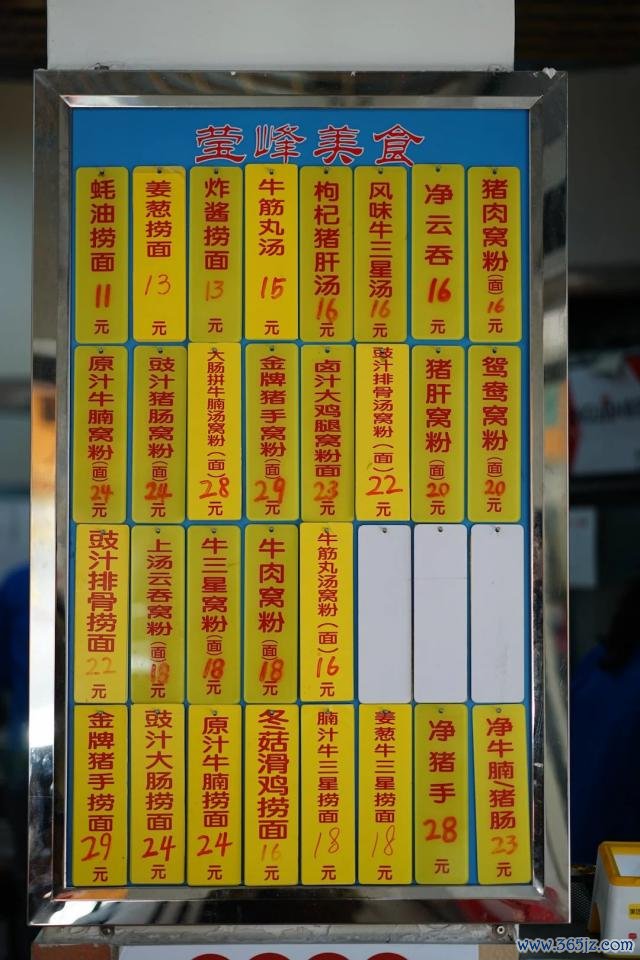 莹峰美食
蚝油捞面 11 元
姜葱捞面 13 元
炸酱捞面 13 元
牛筋丸汤 15 元
枸杞猪肝汤 16 元
风味牛三星汤 16 元
净云吞 16 元
猪肉窝粉(面) 16 元
原汁牛腩窝粉(面) 24 元
豉汁猪肠窝粉(面) 24 元
大肠拼牛腩汤窝粉(面) 28 元
金牌猪手窝粉(面) 29 元
卤汁大鸡腿窝粉面 23 元
豉汁排骨汤窝粉(面) 22 元
猪肝窝粉(面) 20 元
鸳鸯窝粉(面) 20 元
豉汁排骨捞面 22 元
上汤云吞窝粉(面) 18 元
牛三星窝粉(面) 18 元
牛肉窝粉(面) 18 元
牛筋丸汤窝粉(面) 16 元
金牌猪手捞面 29 元
豉汁大肠捞面 24 元
原汁牛腩捞面 24 元
冬菇滑鸡捞面 16 元
腩汁牛三星捞面 18 元
姜葱牛三星捞面 18 元
净猪手 28 元
净牛腩/猪肠 23 元
www.365jz.com